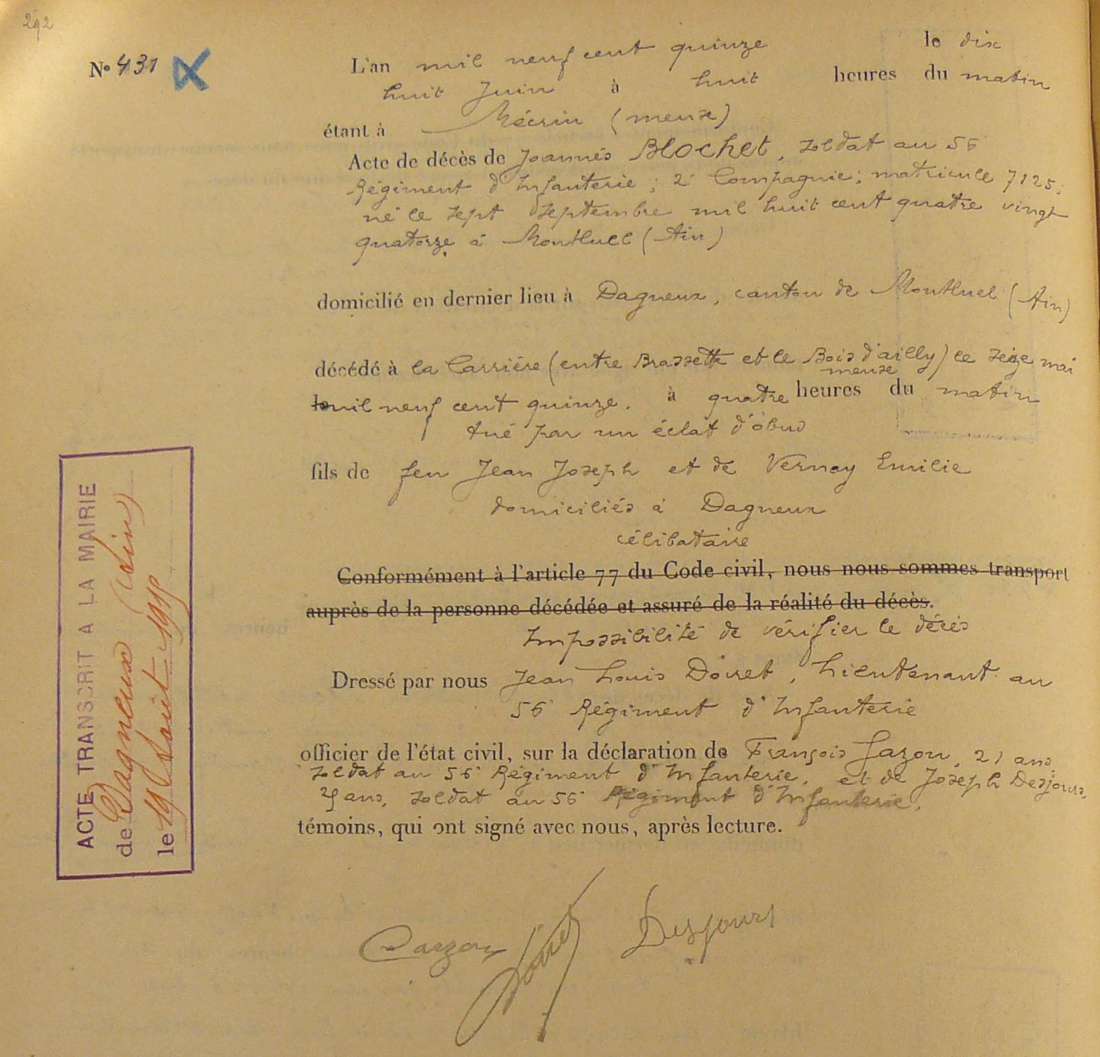 292
N° 431
L'an mil neuf cent quinze le dix
huit Juin à huit heures du matin
étant à Mécrin (meuse)
Acte de décès de Joannès Blochet, soldat au 56
Régiment d'Infanterie; 2e Compagnie; matricule 7125;
né le sept Septembre mil huit cent quatre vingt
quatorze à Montluel (Ain)
domicilié en dernier lieu à Dagneux, canton de Montluel (Ain)
décédé à la Carrière (entre Brassette et le Bois d'ailly) le seize mai
meuse
mil neuf cent quinze. à quatre heures du matin
tué par un éclat d'obus
fils de feu Jean Joseph et de Vernay Emilie
domiciliés à Dagneux
célibataire
Conformément à l'article 77 du Code civil, nous nous sommes transport
auprès de la personne décédée et assuré de la réalité du décès.
Impossibilité de vérifier le décès
Dressé par nous Jean Louis Doiret, Lieutenant au
56 Régiment d'Infanterie
officier de l'état civil, sur la déclaration de François 21 ans
soldat au 56 Régiment d'Infanterie, et de Joseph Desjours,
ans, soldat au 56 Régiment d'Infanterie,
témoins, qui ont signé avec nous, après lecture.
Doiret Desjours
ACTE TRANSCRIT A LA MAIRIE
de Dagneux (Ain)
le 19 Août 1915